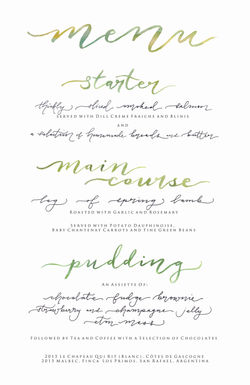 menu
starter
thickly sliced smoked salmon
Served with Dill Creme Fraiche and Blinis
and
a selection of homemade breads and butter
main
course
leg of spring lamb
Roasted with Garlic and Rosemary
Served with Potato Dauphinoise,
Baby Chantenay Carrots and Fine Green Beans
pudding
An Assiette of:
chocolate fudge brownie
strawberry and champagne jelly
eton mess
Followed by Tea and Coffee with a Selection of Chocolates
2013 Le Chapeau des Rief (Blanc), Côtes de Gascogne
2013 Malbec, Finca Los Primos, San Rafael, Argentina